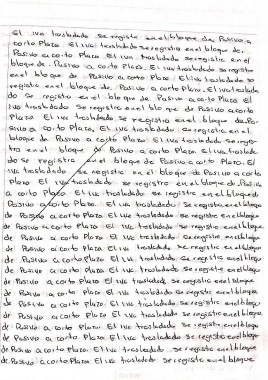 El iva trasladado se registra en el bloque de Pasivo a
corto Plazo. El iva trasladado se registra en el bloque de.
Pasivo a corto Plazo. El iva trasladado se registra en el
bloque de. Pasivo a corto Plazo. El iva trasladado se registra
en el bloque de. Pasivo a corto Plazo. El iva trasladado se
registra en el bloque de. Pasivo a corto Plazo. El iva trasladado
se registra en el bloque de. Pasivo a corto Plazo El
iva trasladado se registra en el bloque de Pasivo a corto
Plazo El iva trasladado se registra en el bloque de. Pa-
sivo a corto Plazo. El iva trasladado se registra en el
bloque de Pasivo a corto Plazo. El iva trasladado se regis-
tra en el bloque de Pasivo a corto Plazo. El iva traslada-
do se registra en el bloque de Pasivo a corto Plazo. El
iva trasladado se registra en el bloque de Pasivo a corto
Plazo El iva trasladado se registra en el bloque de Pasivo
a corto Plazo El iva trasladado se registra en el bloque de
Pasivo a corto Plazo El iva trasladado se registra en el bloque
de Pasivo a corto Plazo. El iva trasladado se registra en el bloque
de Pasivo a corto Plazo. El iva trasladado se registra en el bloque
de Pasivo a corto Plazo. El iva trasladado se registra en el bloque
de Pasivo a corto Plazo. El iva trasladado se registra en el bloque
de Pasivo a corto Plazo. El iva trasladado se registra en el bloque
de Pasivo a corto Plazo El iva trasladado se registra en el bloque
de Pasivo a corto Plazo El iva trasladado se registra en el bloque
de Pasivo a corto Plazo. El iva trasladado se registra en el bloque
de Pasivo a corto Plazo. El iva trasladado se registra en el bloque
de Pasivo a corto Plazo. El iva trasladado se registra en el bloque
de Pasivo a corto Plazo. El iva trasladado se registra en el bloque